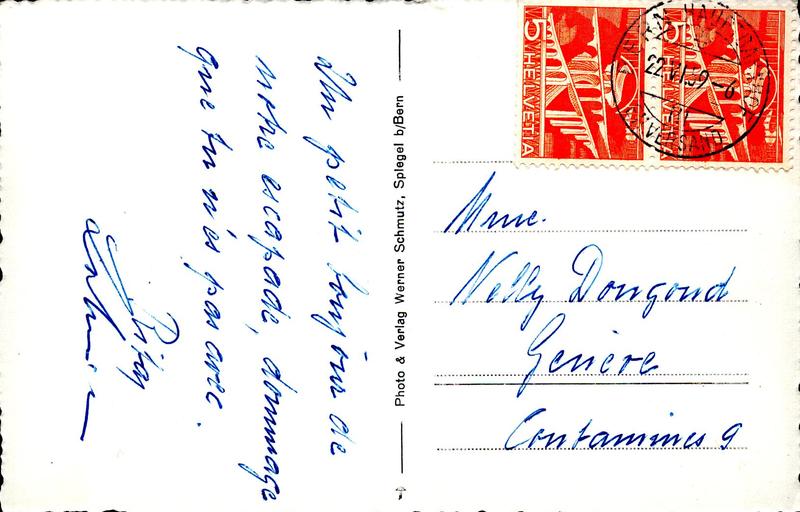 Un petit bonjour de
notre escapade, dommage
que tu n'es pas avec.
Photo & Verlag Werner Schmutz, Spiegel b/Bern
5
HELVETIA
5
HELVETIA
22.VI.59-6
Mme.
Nelly Dongond
Genève
Contamines 9